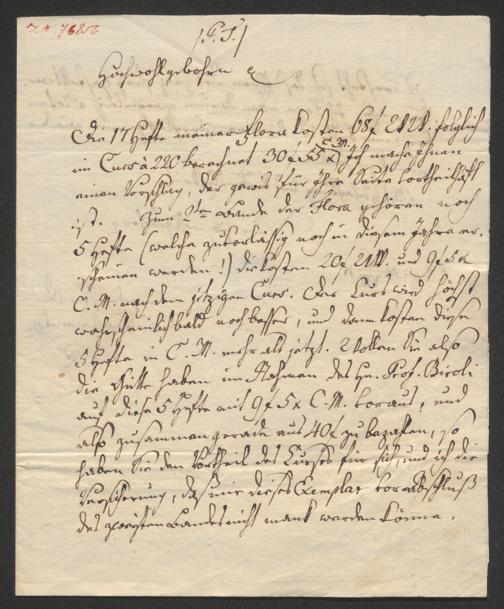 /: P. T. :/
Hochwohlgebohrn
Die 17 Hefte meiner Flora kosten 68f W.W. folglich
im Curs à 220 berechnet 30f 55x C.M. Ich mache Ihnen
einen Vorschlag, der gewis für Ihre Seite vortheilhaft
ist. Zum 2ten Bande der Flora gehören noch
5 Hefte (welche zuverlässig noch in diesem Jahre er-
scheinen werden!) die kosten 20f W.W. und 9f 5x
C. M. nach dem jetzigen Curs. Der Curs wird höchst
wahrscheinlich bald noch besser, und dann kosten diese
5 Hefte in C. M. mehr als jetzt. Wollen Sie also
die Güte haben im Nahmen des Hn. Prof. Biroli
auf diese 5 Hefte mit 9f 5x C.M. voraus, und
also zusammen gerade aus 40f zu bezahlen, so
haben Sie den Vortheil des Curses für sich, und ich die
Versicherung, daß mir dieses Exemplar vor Abschluß
des zweyten Bandes nicht mank werden könne.